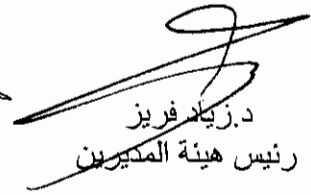 د.زياد فريز
رئيس هيئة المديرين